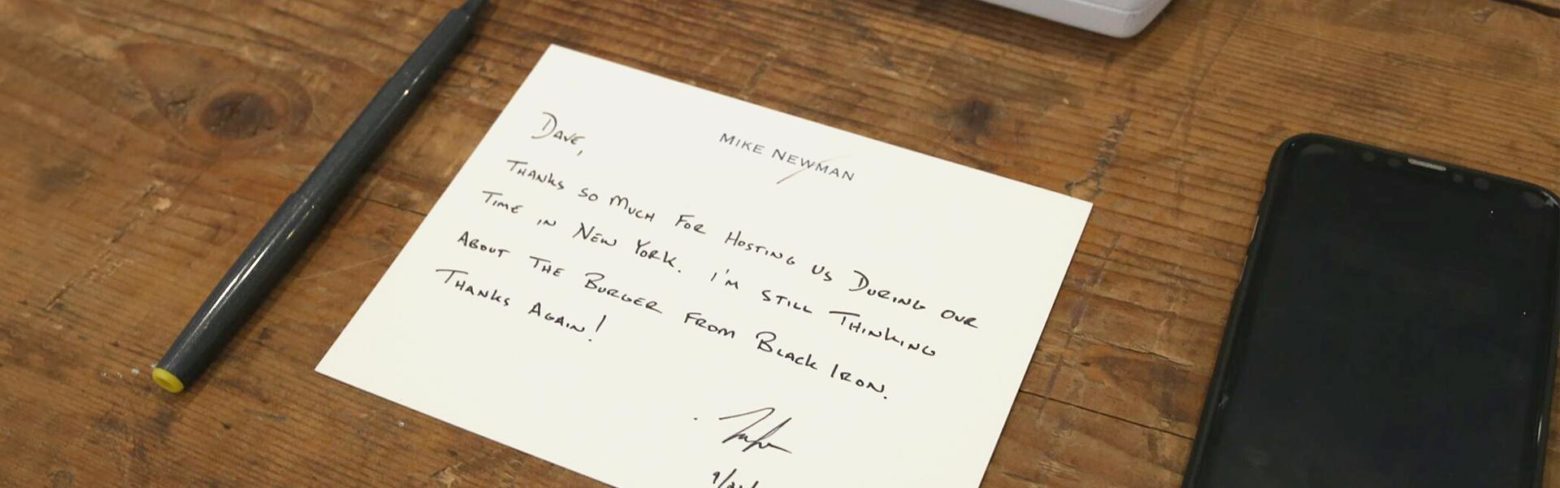 MIKE NEWMAN
Dave,
Thanks so much for hosting us during our
time in New York. I'm still thinking
about the burger from Black Iron.
Thanks again!